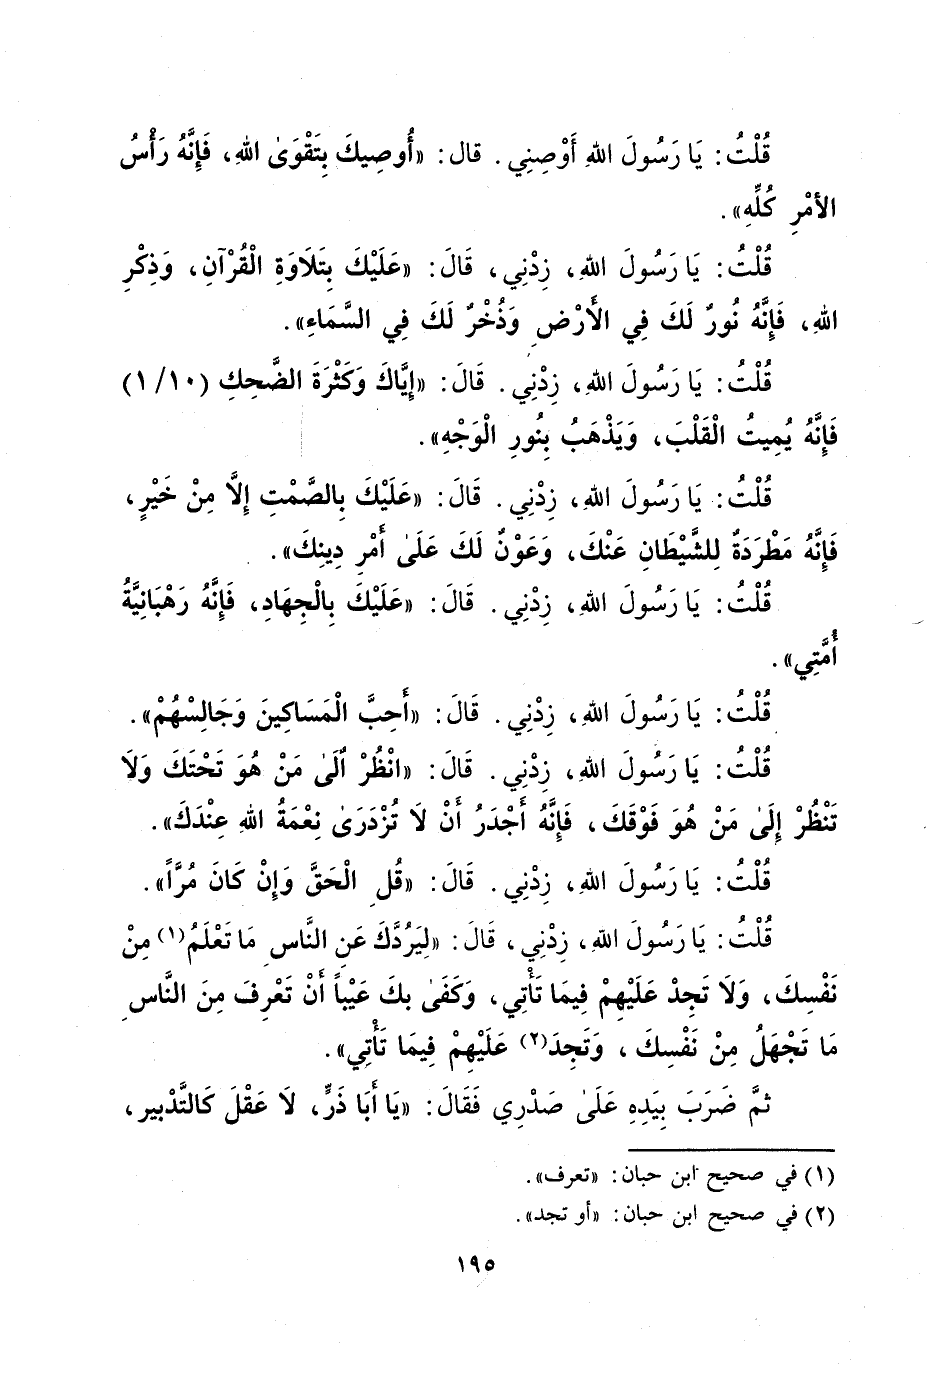 قُلْتُ: يَا رَسُولَ اللهِ أَوْصِنِي. قال: «أُوصِيكَ بِتَقْوَىٰ اللهِ، فَإِنَّهُ رَأْسُ
الأمْرِ كُلِّهِ».
قُلْتُ: يَا رَسُولَ اللهِ، زِدْنِي، قَالَ: «عَلَيْكَ بِتَلَاوَةِ الْقُرْآنِ، وَذِكْرِ
اللهِ، فَإِنَّهُ نُورٌ لَكَ فِي الأَرْضِ وَذُخْرٌ لَكَ فِي السَّمَاءِ».
قُلْتُ: يَا رَسُولَ اللهِ، زِدْنِي. قَالَ: «إِيَّاكَ وَكَثْرَةَ الضَّحِكِ (١/١٠)
فَإِنَّهُ يُمِيتُ الْقَلْبَ، وَيَذْهَبُ بِنُورِ الْوَجْهِ».
قُلْتُ: يَا رَسُولَ اللهِ، زِدْنِي. قَالَ: «عَلَيْكَ بِالصَّمْتِ إِلَّا مِنْ خَيْرٍ،
فَإِنَّهُ مَطْرَدَةٌ لِلشَّيْطَانِ عَنْكَ، وَعَوْنٌ لَكَ عَلَىٰ أَمْرِ دِينِكَ».
قُلْتُ: يَا رَسُولَ اللهِ، زِدْنِي. قَالَ: «عَلَيْكَ بِالْجِهَادِ، فَإِنَّهُ رَهْبَانِيَّةُ
أُمَّتِي».
قُلْتُ: يَا رَسُولَ اللهِ، زِدْنِي. قَالَ: «أَحِبَّ الْمَسَاكِينَ وَجَالِسْهُمْ».
قُلْتُ: يَا رَسُولَ اللهِ، زِدْنِي. قَالَ: «انْظُرْ الَىٰ مَنْ هُوَ تَحْتَكَ وَلَا
تَنْظُرْ إِلَىٰ مَنْ هُوَ فَوْقَكَ، فَإِنَّهُ أَجْدَرُ أَنْ لَا تُزْدَرَىٰ نِعْمَةُ اللهِ عِنْدَكَ».
قُلْتُ: يَا رَسُولَ اللهِ، زِدْنِي. قَالَ: «قُلِ الْحَقَّ وَإِنْ كَانَ مُرًّا».
قُلْتُ: يَا رَسُولَ اللهِ، زِدْنِي، قَالَ: «لِيَرُدَّكَ عَنِ النَّاسِ مَا تَعْلَمُ(١) مِنْ
نَفْسِكَ، وَلَا تَجِدْ عَلَيْهِمْ فِيمَا تَأْتِي، وَكَفَىٰ بِكَ عَيْباً أَنْ تَعْرِفَ مِنَ النَّاسِ
مَا تَجْهَلُ مِنْ نَفْسِكَ، وَتَجِدَ(٢) عَلَيْهِمْ فِيمَا تَأْتِي».
ثمَّ ضَرَبَ بِيَدِهِ عَلَىٰ صَدْرِي فَقَالَ: «يَا أَبَا ذَرٍّ، لَا عَقْلَ كَالتَّدْبِيرِ،
(١) في صحيح ابن حبان: «تعرف».
(٢) في صحيح ابن حبان: «أو تجد».
١٩٥